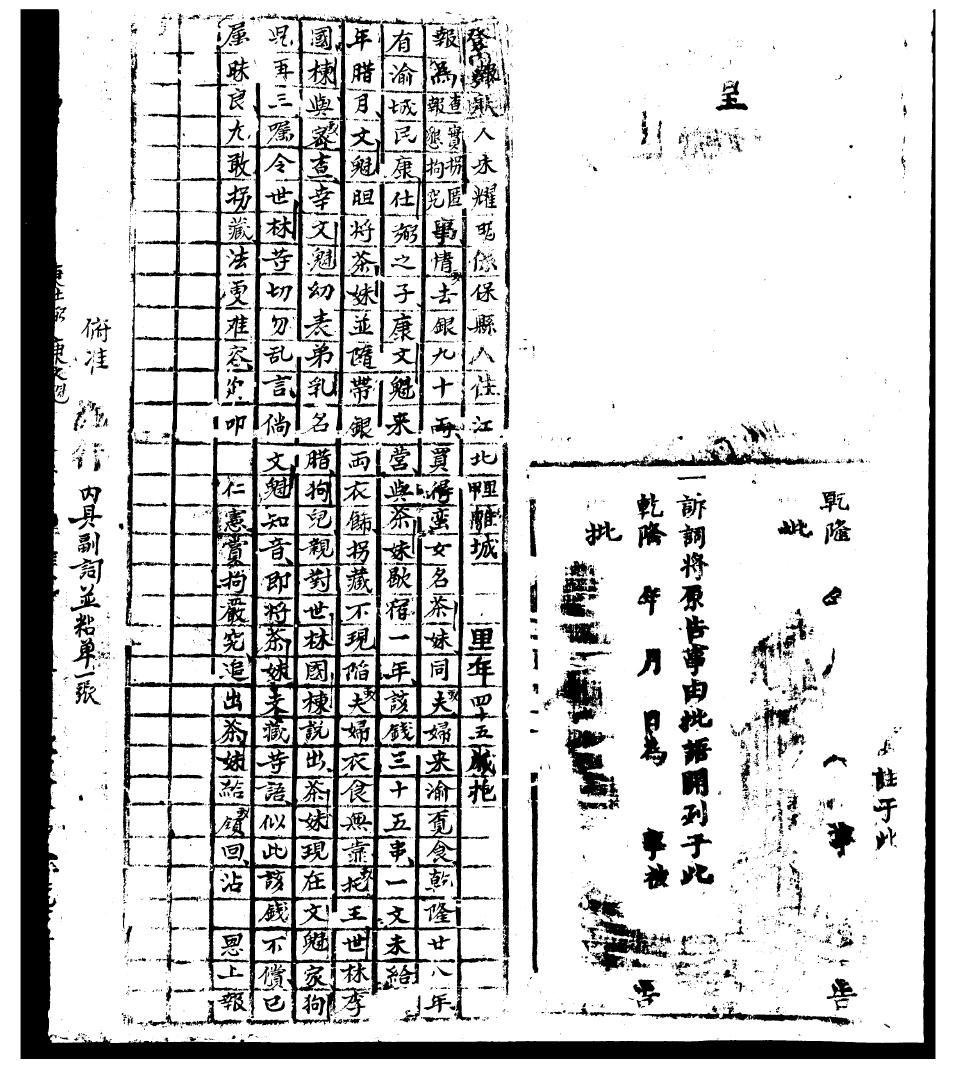 呈
註于此
乾隆
批
告
一訴詞將原告事由批語開列于此
乾隆 年 月 日為 事被 告
批
報人朱耀 係保縣人住江北 里離城 里年四十五歲抱
報為查實拐匿報懇拘究事情去銀九十両買得蛮女名茶妹同夫婦来渝覓食乾隆廿八年
有渝城民康仕弼之子康文魁来营與茶妹歇宿一年該錢三十五串一文未給
年腊月文魁胆將茶妹並隨帶銀両衣飾拐藏不現陷夫婦衣食無靠托王世林李
國棟與蜜查幸文魁幼表弟乳名腊狗兒親對世林國棟說出茶妹現在文魁家狗
児再三嘱令世林等切勿乱言倘文魁知音即將茶妹夫藏等語似此該錢不償已
屬昧良尤敢拐藏法更难容叩 仁憲賞拘嚴究追出茶妹給領回沾 恩上報
俯准 行 内具副詞並粘单一張